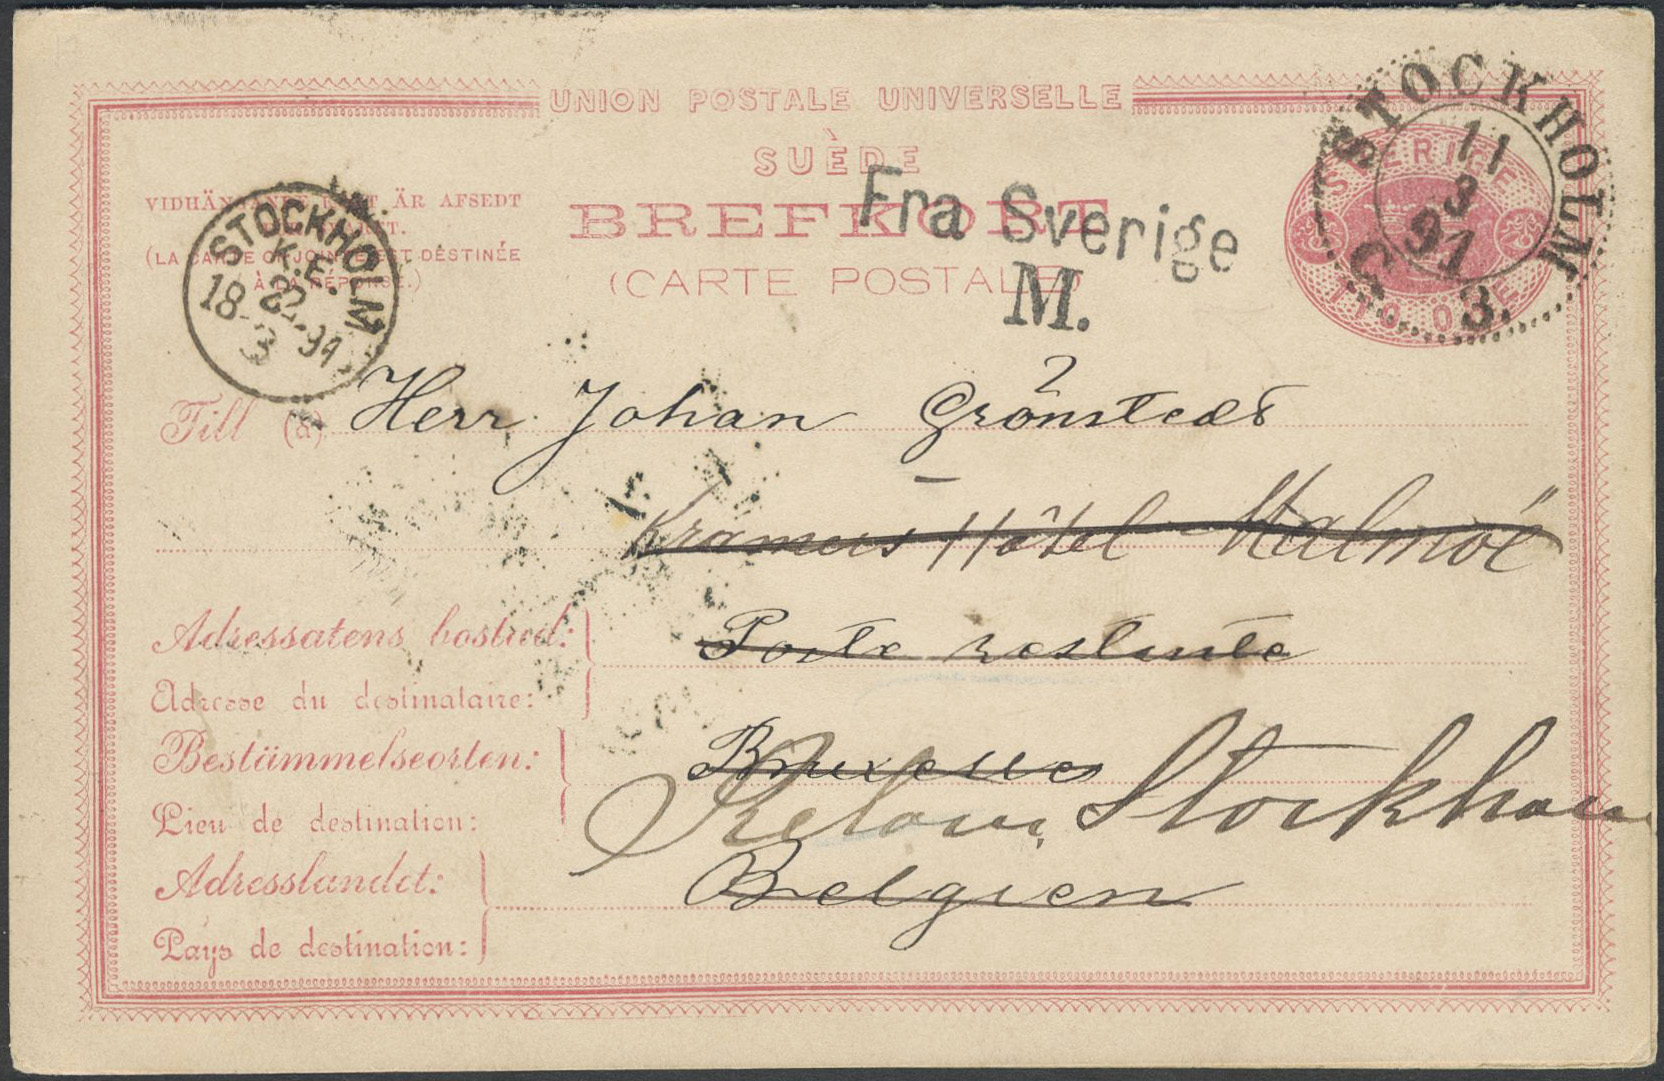 UNION POSTALE UNIVERSELLE
SUÈDE
BREFKORT
(CARTE POSTALE)
VIDHÄNGANDE ÄR AFSEDT
(LA CARTE CI-JOINTE EST DESTINÉE
À LA RÉPONSE.)
SVERIGE
TIO ÖRE
STOCKHOLM
11
3
91
C. 3.
Fra Sverige
M.
STOCKHOLM
K.E.
22.
18 3 91
Till (à) Herr Johan Grönstedt
2
Kramers Hôtel Malmöe
Adressatens bostad: Poste restante
Adresse du destinataire:
Bestämmelseorten: Bruxelles
Retour Stockholm
Lieu de destination:
Adresslandet: Belgien
Pays de destination: